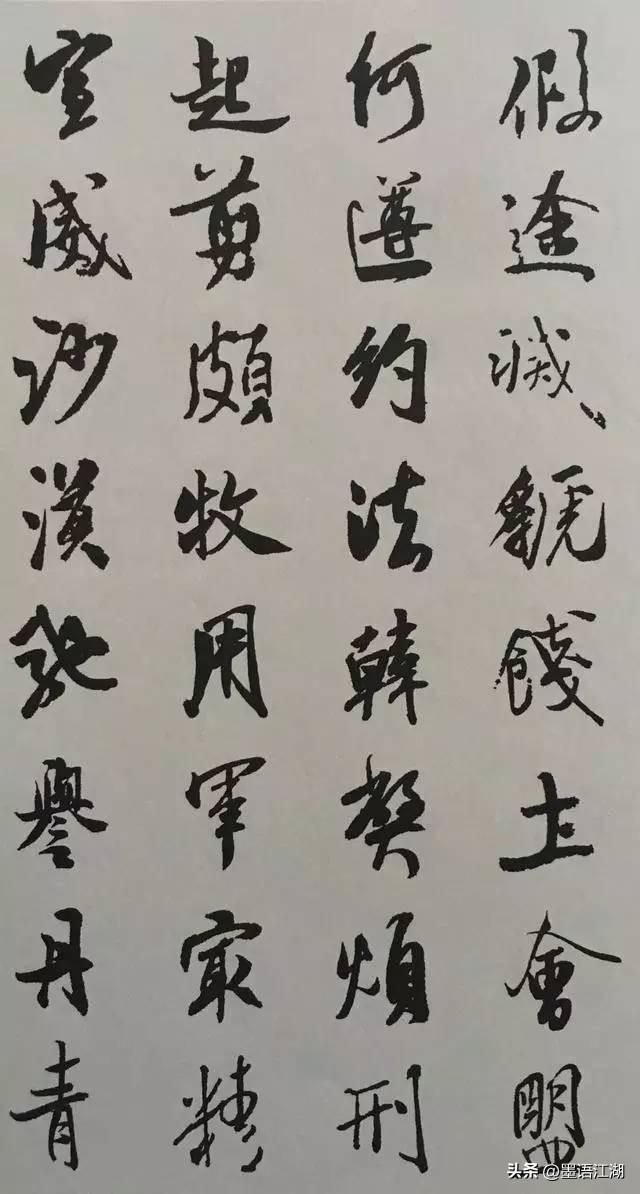 假途滅虢踐土會盟
何遵約法韓弊煩刑
起翦頗牧用軍最精
宣威沙漠馳譽丹青
头条 @墨语江湖